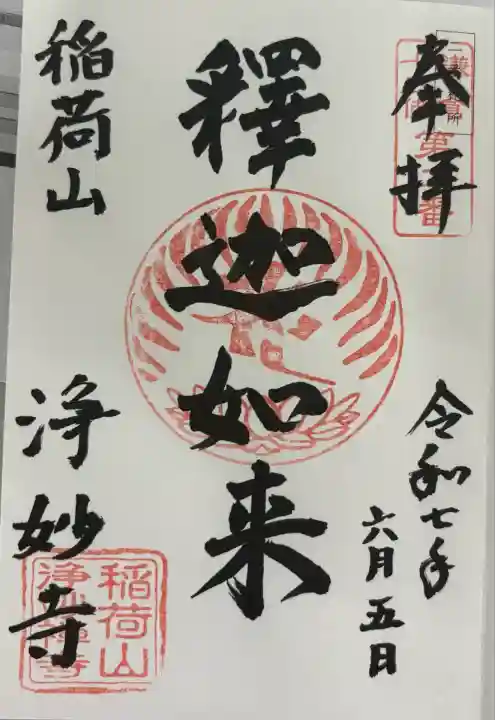 奉拝
釋迦如来
令和七年
六月五日
稲荷山
浄妙寺
稲荷山
浄妙禅寺